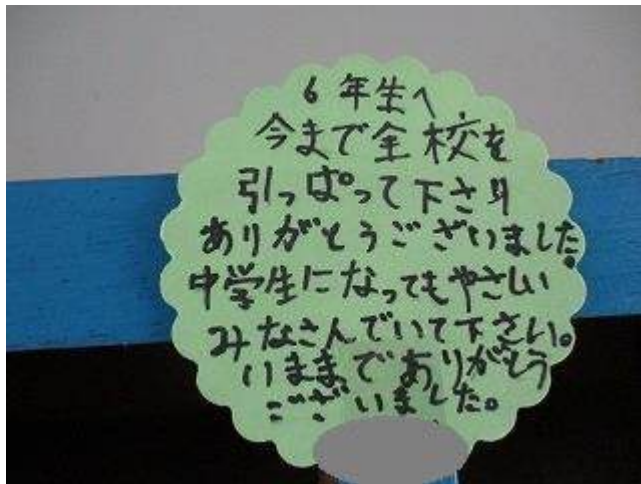 6年生へ
今まで全校を
引っぱって下さり
ありがとうございました。
中学生になってもやさしい
みなさんでいて下さい。
いままでありがとう
ございました。